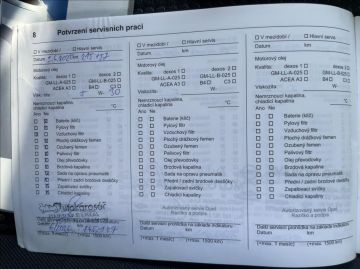 8 Potvrzení servisních prací
V mezidobí / Hlavní servis
Datum km
Motorový olej
Kvalita: dexos 1 dexos 2
GM-LL-A-025 GM-LL-B-025
ACEA A3 B4 C3
Viskozita: W-
Nemrznoucí kapalina,
chladicí kapalina °C
Ano Ne
Baterie (klíč)
Pylový filtr
Vzduchový filtr
Plochý drážkový řemen
Ozubený řemen
Palivový filtr
Olej převodovky
Brzdová kapalina
Sada na opravu pneumatik
Přední / zadní brodové destičky
Zapalovací svíčky
Chladicí kapaliny
Autokarosář
Další servisní prohlídka na základě indikátoru:
Datum km
(+max. 1 měsíc) (+max. 1500 km)
V mezidobí / Hlavní servis
Datum km
Motorový olej
Kvalita: dexos 1 dexos 2
GM-LL-A-025 GM-LL-B-025
ACEA A3 B4 C3
Viskozita: W-
Nemrznoucí kapalina,
chladicí kapalina °C
Ano Ne
Baterie (klíč)
Pylový filtr
Vzduchový filtr
Plochý drážkový řemen
Ozubený řemen
Palivový filtr
Olej převodovky
Brzdová kapalina
Sada na opravu pneumatik
Přední / zadní brodové destičky
Zapalovací svíčky
Chladicí kapaliny
Autorizovaný servis Opel
Razítko a podpis
Další servisní prohlídka na základě indikátoru:
Datum km
(+max. 1 měsíc) (+max. 1500 km)
V mezidobí / Hlavní servis
Datum km
Motorový olej
Kvalita: dexos 1
GM-LL-A-025
ACEA A3 B4
Viskozita:
Nemrznoucí kapalina,
chladicí kapalina
Ano Ne
Baterie (klíč)
Pylový filtr
Vzduchový filtr
Plochý drážkový řemen
Ozubený řemen
Palivový filtr
Olej převodovky
Brzdová kapalina
Sada na opravu pneumatik
Přední / zadní brodové destičky
Zapalovací svíčky
Chladicí kapaliny
Autorizovaný servis Opel
Razítko a podpis
Další servisní prohlídka na základě
Datum
(+max. 1 měsíc) (+max. 1500 km)